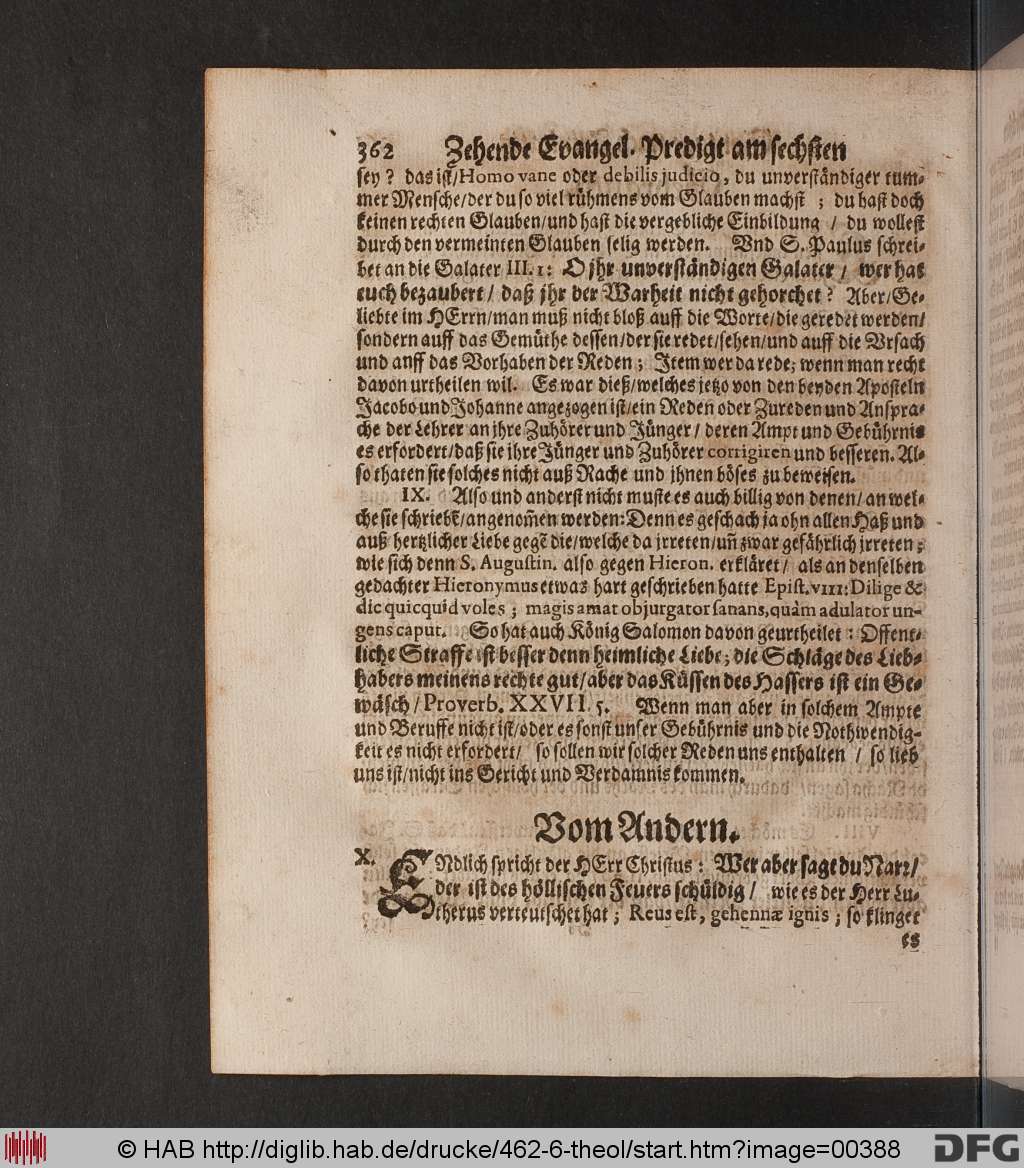 362 Zehende Evangel. Predigt am sechsten
sey? das ist/Homo vane oder debilis judicio, du unverständiger tum-
mer Mensche/der du so viel rühmens vom Glauben machst ; du hast doch
keinen rechten Glauben/und hast die vergebliche Einbildung / du wollest
durch den vermeinten Glauben selig werden. Vnd S. Paulus schrei-
bet an die Galater III. 1: O jhr unverständigen Galater / wer hat
euch bezaubert / daß jhr der Warheit nicht gehorchet? Aber/Ge-
liebte im HErrn/man muß nicht bloß auff die Worte/die geredet werden/
sondern auff das Gemüthe dessen/der sie redet/sehen/und auff die Vrsach
und auff das Vorhaben der Reden ; Item wer da rede; wenn man recht
davon urtheilen wil. Es war dieß/welches jetzo von den beyden Aposteln
Jacobo und Johanne angezogen ist/ein Reden oder Zureden und Anspra-
che der Lehrer an jhre Zuhörer und Jünger / deren Ampt und Gebührnis
es erfordert/daß sie ihre Jünger und Zuhörer corrigiren und besseren. Al-
so thaten sie solches nicht auß Rache und jhnen böses zu beweisen.
IX. Also und anderst nicht muste es auch billig von denen/an wel-
che sie schriebẽ/angenom̃en werden: Denn es geschach ja ohn allen Haß und
auß hertzlicher Liebe gegẽ die/welche da jrreten/uñ zwar gefährlich jrreten ;
wie sich denn S. Augustin. also gegen Hieron. erkläret / als an denselben
gedachter Hieronymus etwas hart geschrieben hatte Epist. VIII: Dilige &
dic quicquid voles ; magis amat objurgator sanans, quàm adulator un-
gens caput. So hat auch König Salomon davon geurtheilet : Offent-
liche Straffe ist besser denn heimliche Liebe; die Schläge des Lieb-
habers meinens rechte gut/aber das Küssen des Hassers ist ein Ge-
wäsch / Proverb. XXVII. 5. Wenn man aber in solchem Ampte
und Beruffe nicht ist/oder es sonst unser Gebührnis und die Nothwendig-
keit es nicht erfordert/ so sollen wir solcher Reden uns enthalten / so lieb
uns ist/nicht ins Gericht und Verdamnis kommen.
Vom Andern.
X. ENdlich spricht der HErr Christus : Wer aber sagt du Narr/
der ist des höllischen Feuers schüldig / wie es der Herr Lu-
therus verteutschet hat ; Reus est, gehennæ ignis ; so klinget
es
© HAB http://diglib.hab.de/drucke/462-6-theol/start.htm?image=00388
DFG